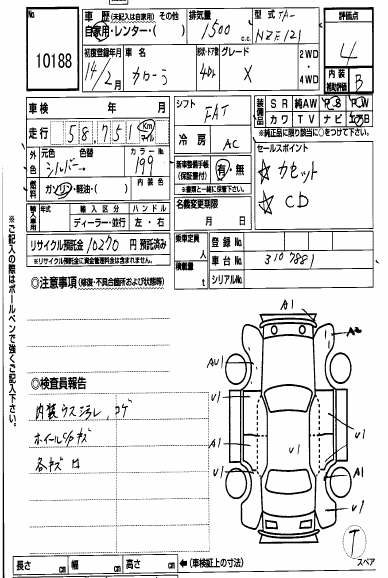 No.
10188
車歴 (未記入は自家用) その他
自家用・レンター・( )
排気量
1500 c.c.
型式 TA-
NZE121
評価点
4
内装
補助評価 B
初度登録年月
14/2月
車名
カローラ
ドア・形状
4DR
グレード
X
2WD
・
4WD
車検 年 月
走行 58,751 Km マイル
外色 元色 色替 カラーNo.
シルバー 199
燃料 ガソリン・軽油・( ) 内装色
輸入車用 年式 輸入区分 ハンドル
ディーラー・並行 左・右
リサイクル預託金 10270 円 預託済み
※リサイクル預託金に資金管理料金は含まれておりません。
シフト FAT
冷房 AC
新車整備手帳
(保証書付) 有・無
※書類と一緒に保管下さい。
名義変更期限
月 日
装備品 SR 純AW PS PW
カワ TV ナビ エアB
※純正品に限り該当に○をつけて下さい。
セールスポイント
☆ カセット
☆ CD
乗車定員 人
積載量 t
登録No.
車台No. 3107881
シリアルNo.
◎注意事項 (修復・不具合個所および状態等)
◎検査員報告
内装ウス汚レ、コゲ
ホイールCapキズ
各キズ
※ご記入の際はボールペンで強くご記入下さい。
A1
A2
AU1
U1
U1
A1
U1
A1
U1
U1
T
スペア
長さ cm 幅 cm 高さ cm ←(車検証上の寸法)